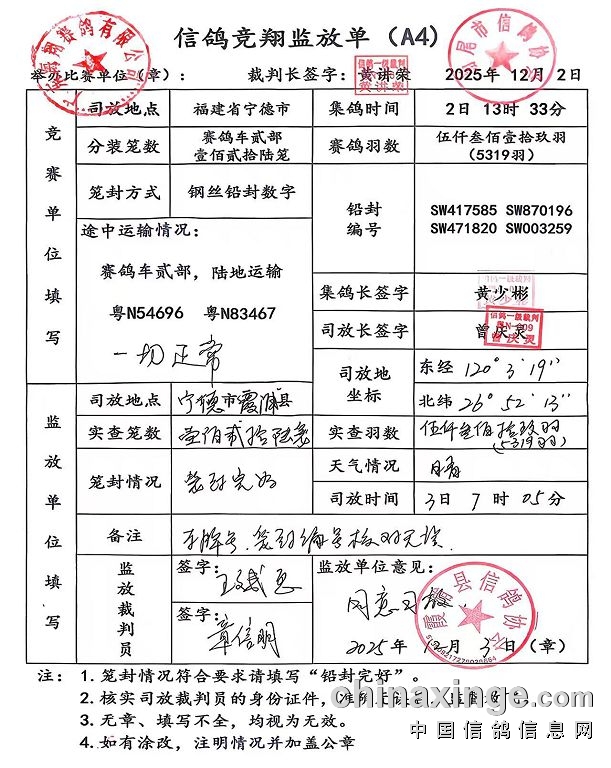 信鸽竞翔监放单（A4）
举办比赛单位（章）： 裁判长签字：黄洪荣 2025年 12月 2日
竞赛单位填写
司放地点 福建省宁德市 集鸽时间 2日 13时 33分
分装笼数 赛鸽车贰部 壹佰贰拾陆笼 赛鸽羽数 伍仟叁佰壹拾玖羽 （5319羽）
笼封方式 钢丝铅封数字 铅封编号 SW417585 SW870196
SW471820 SW003259
途中运输情况：
赛鸽车贰部，陆地运输
粤N54696 粤N83467
一切正常
集鸽长签字 黄少彬
司放长签字 曾庆灵
司放地坐标 东经 120° 3′ 19″
北纬 26° 52′ 13″
监放单位填写
司放地点 宁德市霞浦县
实查笼数 壹佰贰拾陆笼 实查羽数 伍仟叁佰拾玖羽 (5319羽)
笼封情况 笼封完好 天气情况 晴
司放时间 3日 7时 05分
备注 车牌号、笼封编号核对无误.
监放裁判员
签字：
签字： 章信明
监放单位意见：
同意司放
2025年 月 3日（章）
霞浦县信鸽协
注： 1. 笼封情况符合要求请填写“铅封完好”。
2. 核实司放裁判员的身份证件，
3. 无章、填写不全，均视为无效。
4. 如有涂改，注明情况并加盖公章
chinaxinge.com
中国信鸽信息网